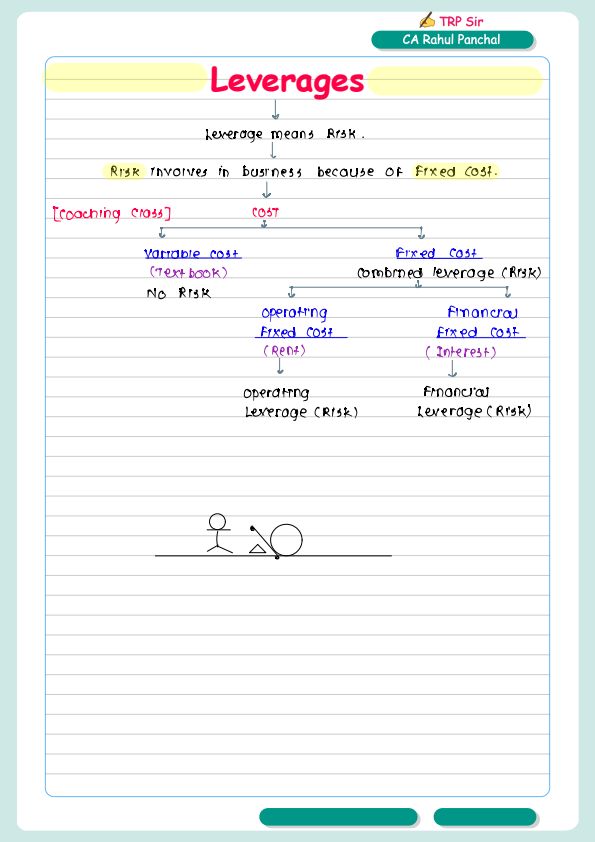 ✍ TRP Sir
CA Rahul Panchal
Leverages
Leverage means Risk.
Risk involves in business because of Fixed Cost.
[Coaching Class] COST
Variable Cost Fixed Cost
(Textbook) Combined leverage (Risk)
No Risk
Operating Financial
Fixed Cost Fixed Cost
(Rent) (Interest)
Operating Financial
Leverage (Risk) Leverage (Risk)